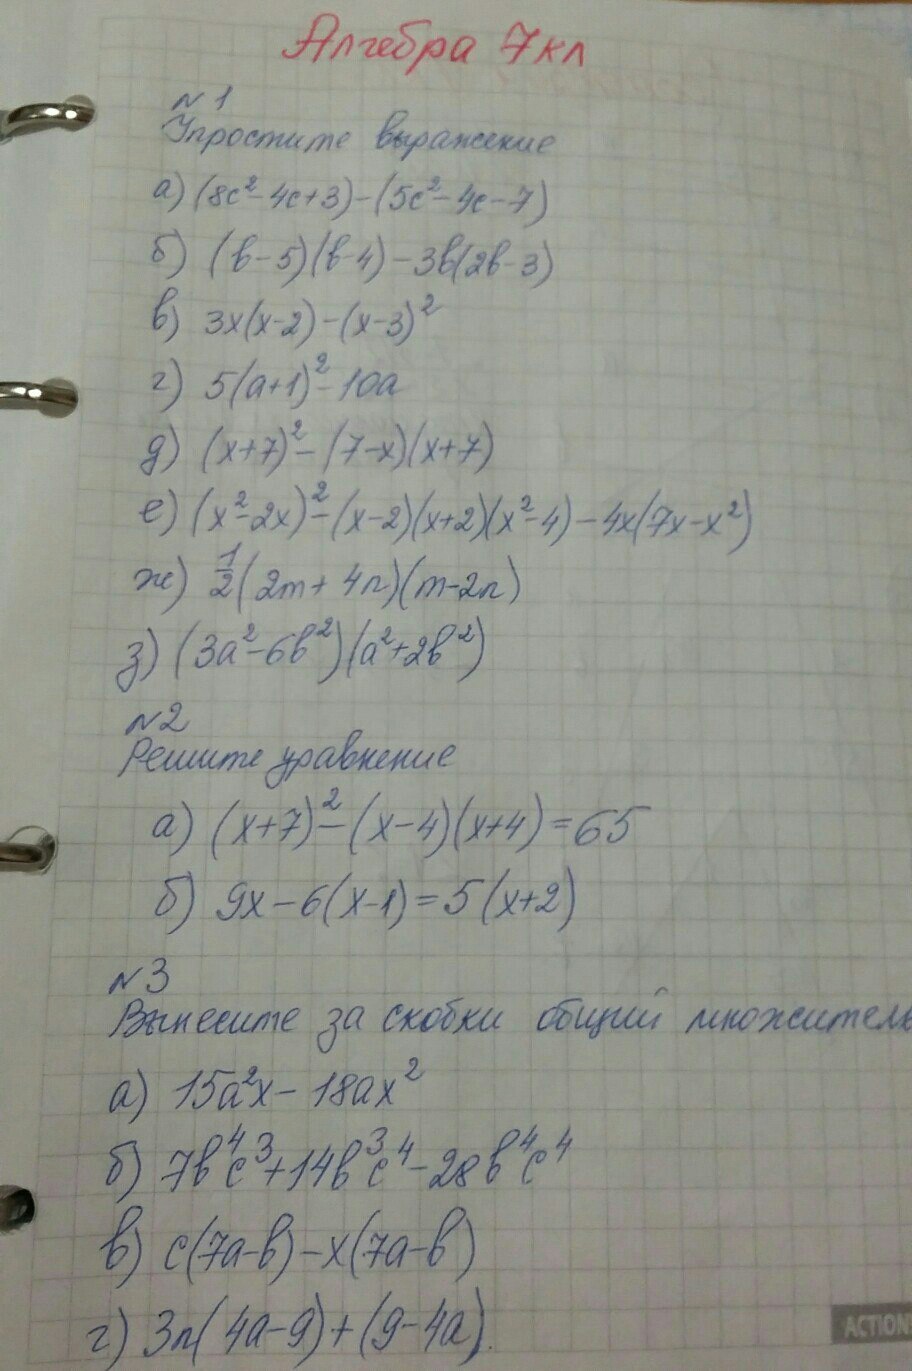 Алгебра 7кл
№1
Упростите выражение
а) (8c²-4c+3)-(5c²-4c-7)
б) (b-5)(b-4)-3b(2b-3)
в) 3x(x-2)-(x-3)²
г) 5(a+1)²-10a
д) (x+7)²-(7-x)(x+7)
е) (x²-2x)²-(x-2)(x+2)(x²-4)-4x(7x-x²)
ж) 1/2(2m+4n)(m-2n)
з) (3a²-6b²)(a²+2b²)
№2
Решите уравнение
а) (x+7)²-(x-4)(x+4)=65
б) 9x-6(x-1)=5(x+2)
№3
Вынесите за скобки общий множитель
а) 15a²x-18ax²
б) 7b⁴c³+14b³c⁴-28b⁴c⁴
в) c(7a-b)-x(7a-b)
г) 3n(4a-9)+(9-4a).
ACTION